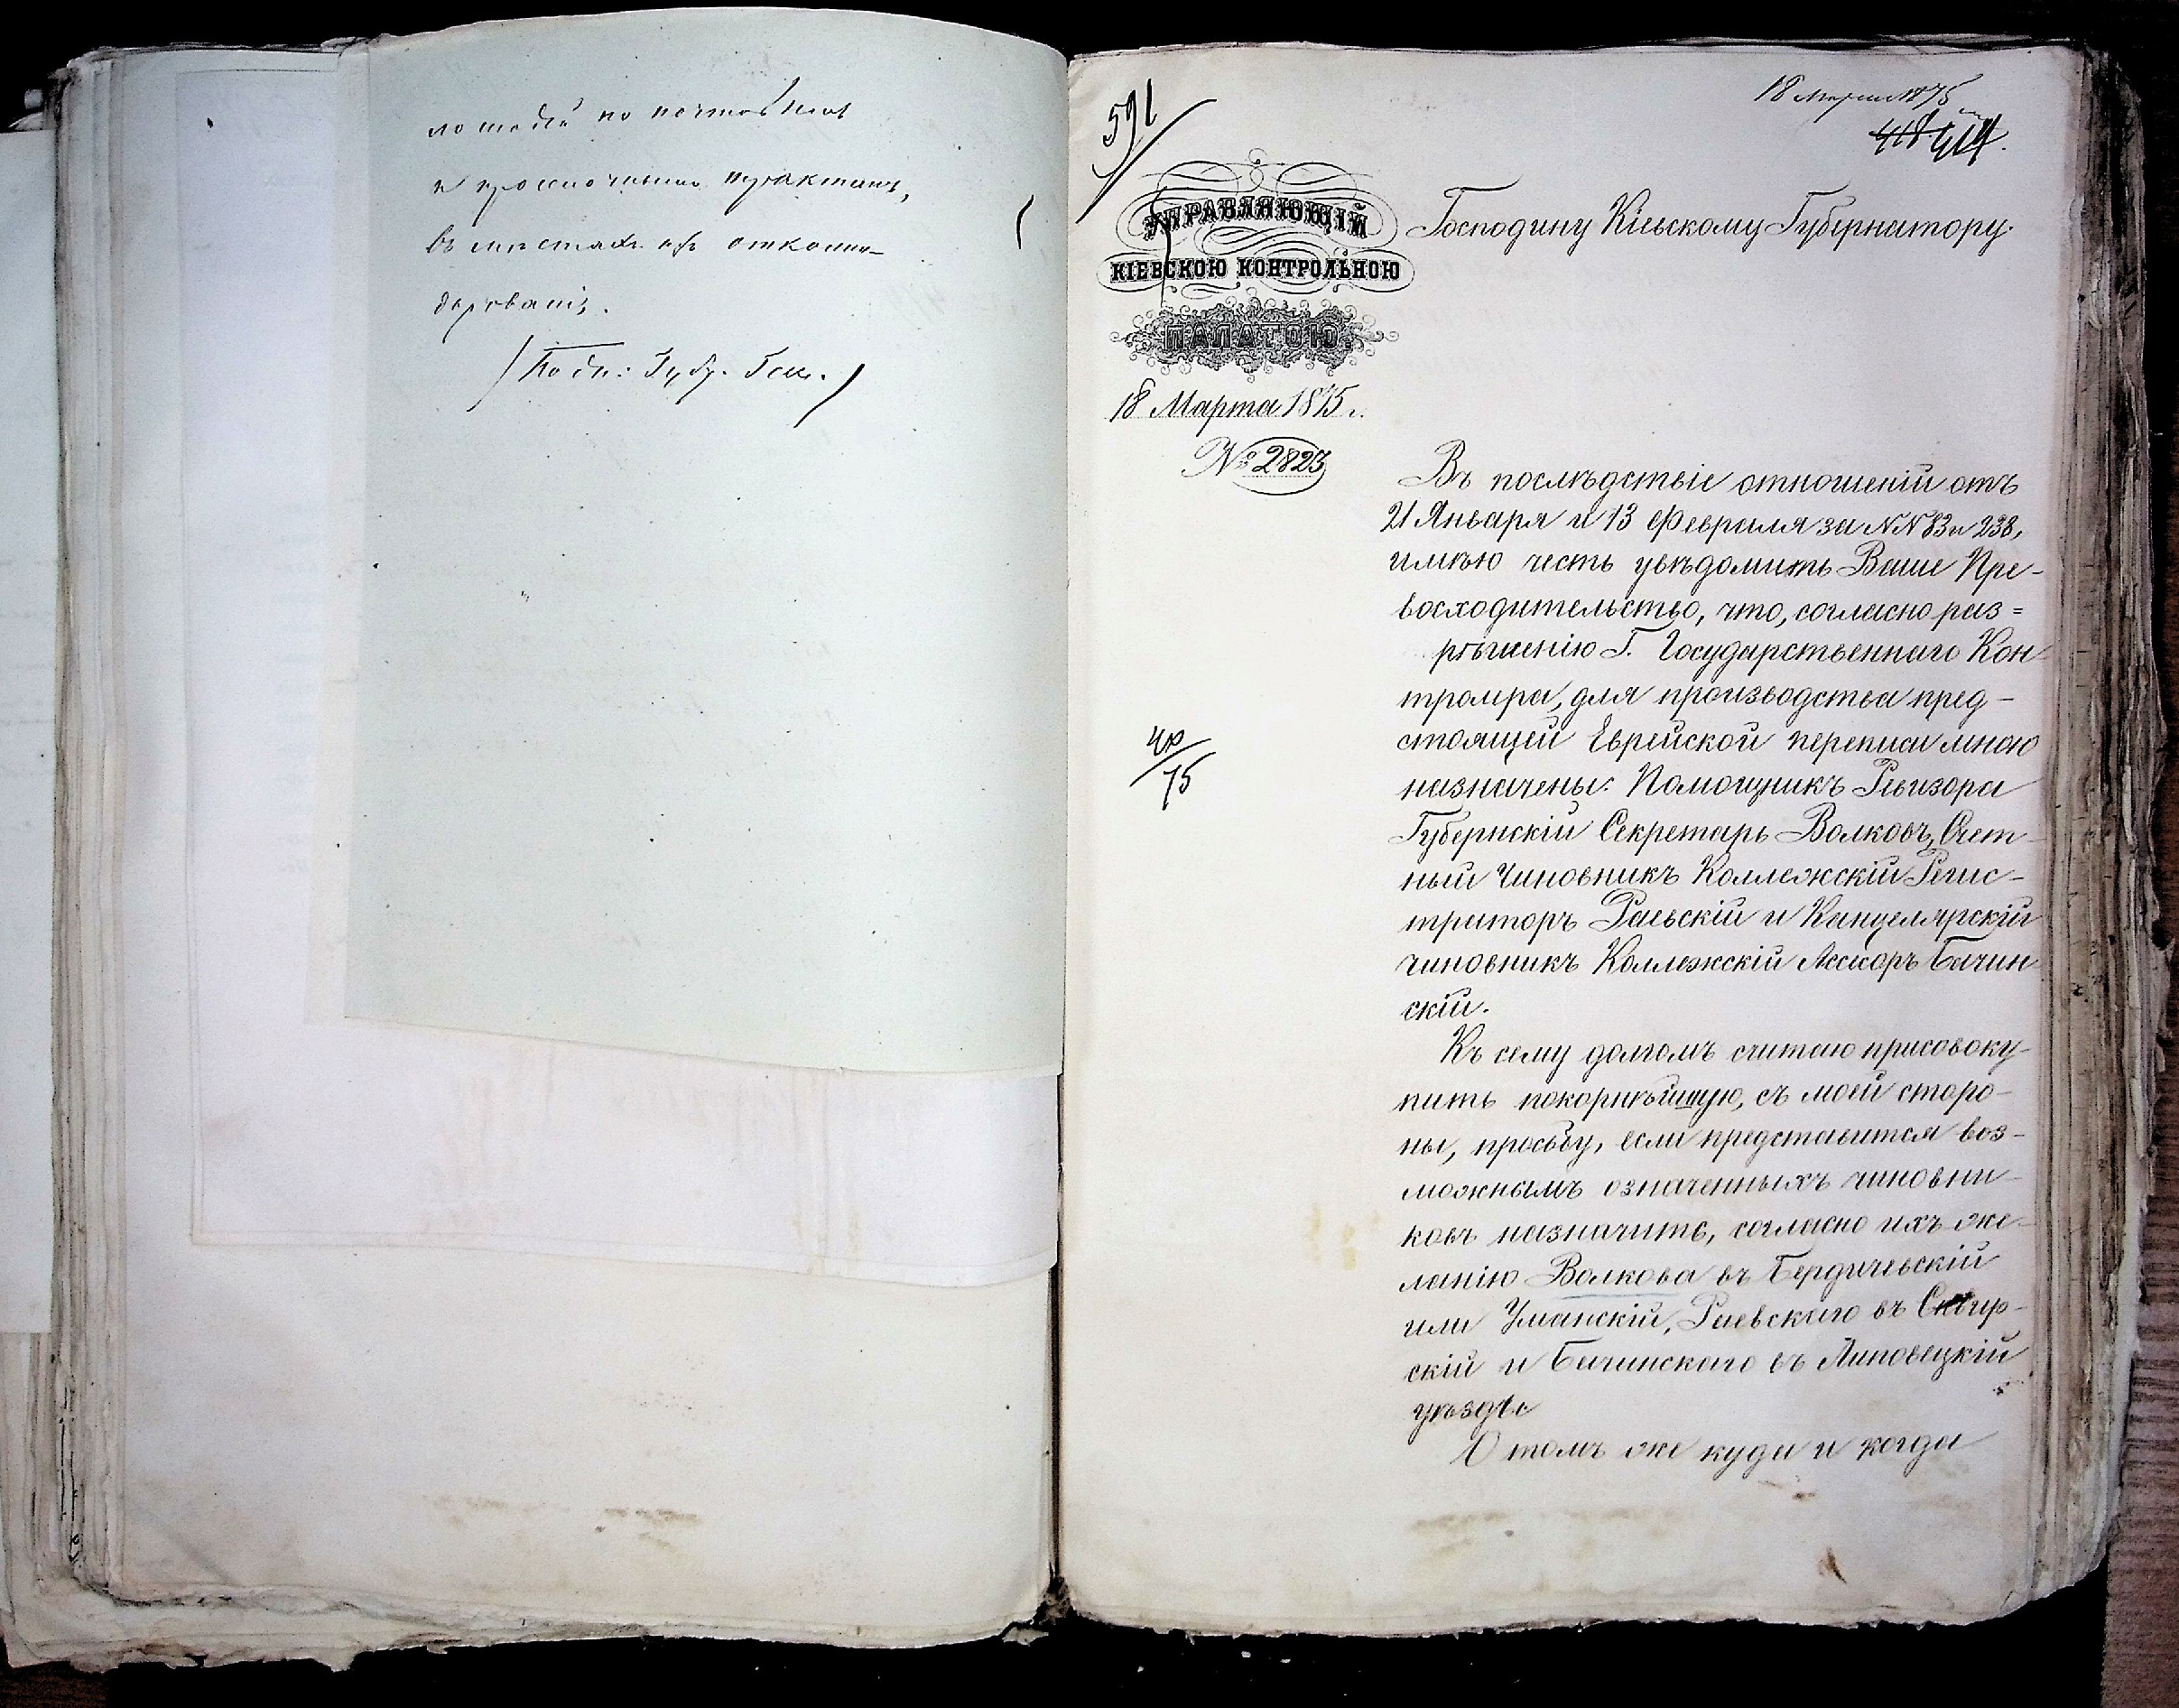 лошадей по почтовымъ
и проселочнымъ трактамъ,
въ мѣстахъ ихъ откоман-
дированія.
(Подп: Губ. Ген.)
591
18 Марта 1875
418 414.
УПРАВЛЯЮЩІЙ
КІЕВСКОЮ КОНТРОЛЬНОЮ
ПАЛАТОЮ.
18 Марта 1875 г.
№ 2823
Господину Кіевскому Губернатору.
Въ послѣдствіе отношеній отъ
21 Января и 13 Февраля за NN 83 и 238,
имѣю честь увѣдомить Ваше Пре-
восходительство, что, согласно раз=
рѣшенію Г. Государственнаго Кон-
тролра, для производства пред-
стоящей Еврейской переписи мною
назначены: Помощникъ Ревизора
Губернскій Секретарь Волковъ, Счет-
ный Чиновникъ Коллежскій Регис-
траторъ Раевскій и Канцелярскій
чиновникъ Коллежскій Ассесоръ Бачин
скій.
Къ сему долгомъ считаю присовоку-
пить покорнѣйшую, съ моей сторо-
ны, просьбу, если представится воз-
можнымъ означенныхъ чиновни-
ковъ назначить, согласно ихъ же-
ланію Волкова въ Бердичевскій
или Уманскій, Раевскаго въ Сквир-
скій и Бачинскаго въ Липовецкій
уѣзды
О томъ же куда и когда
75